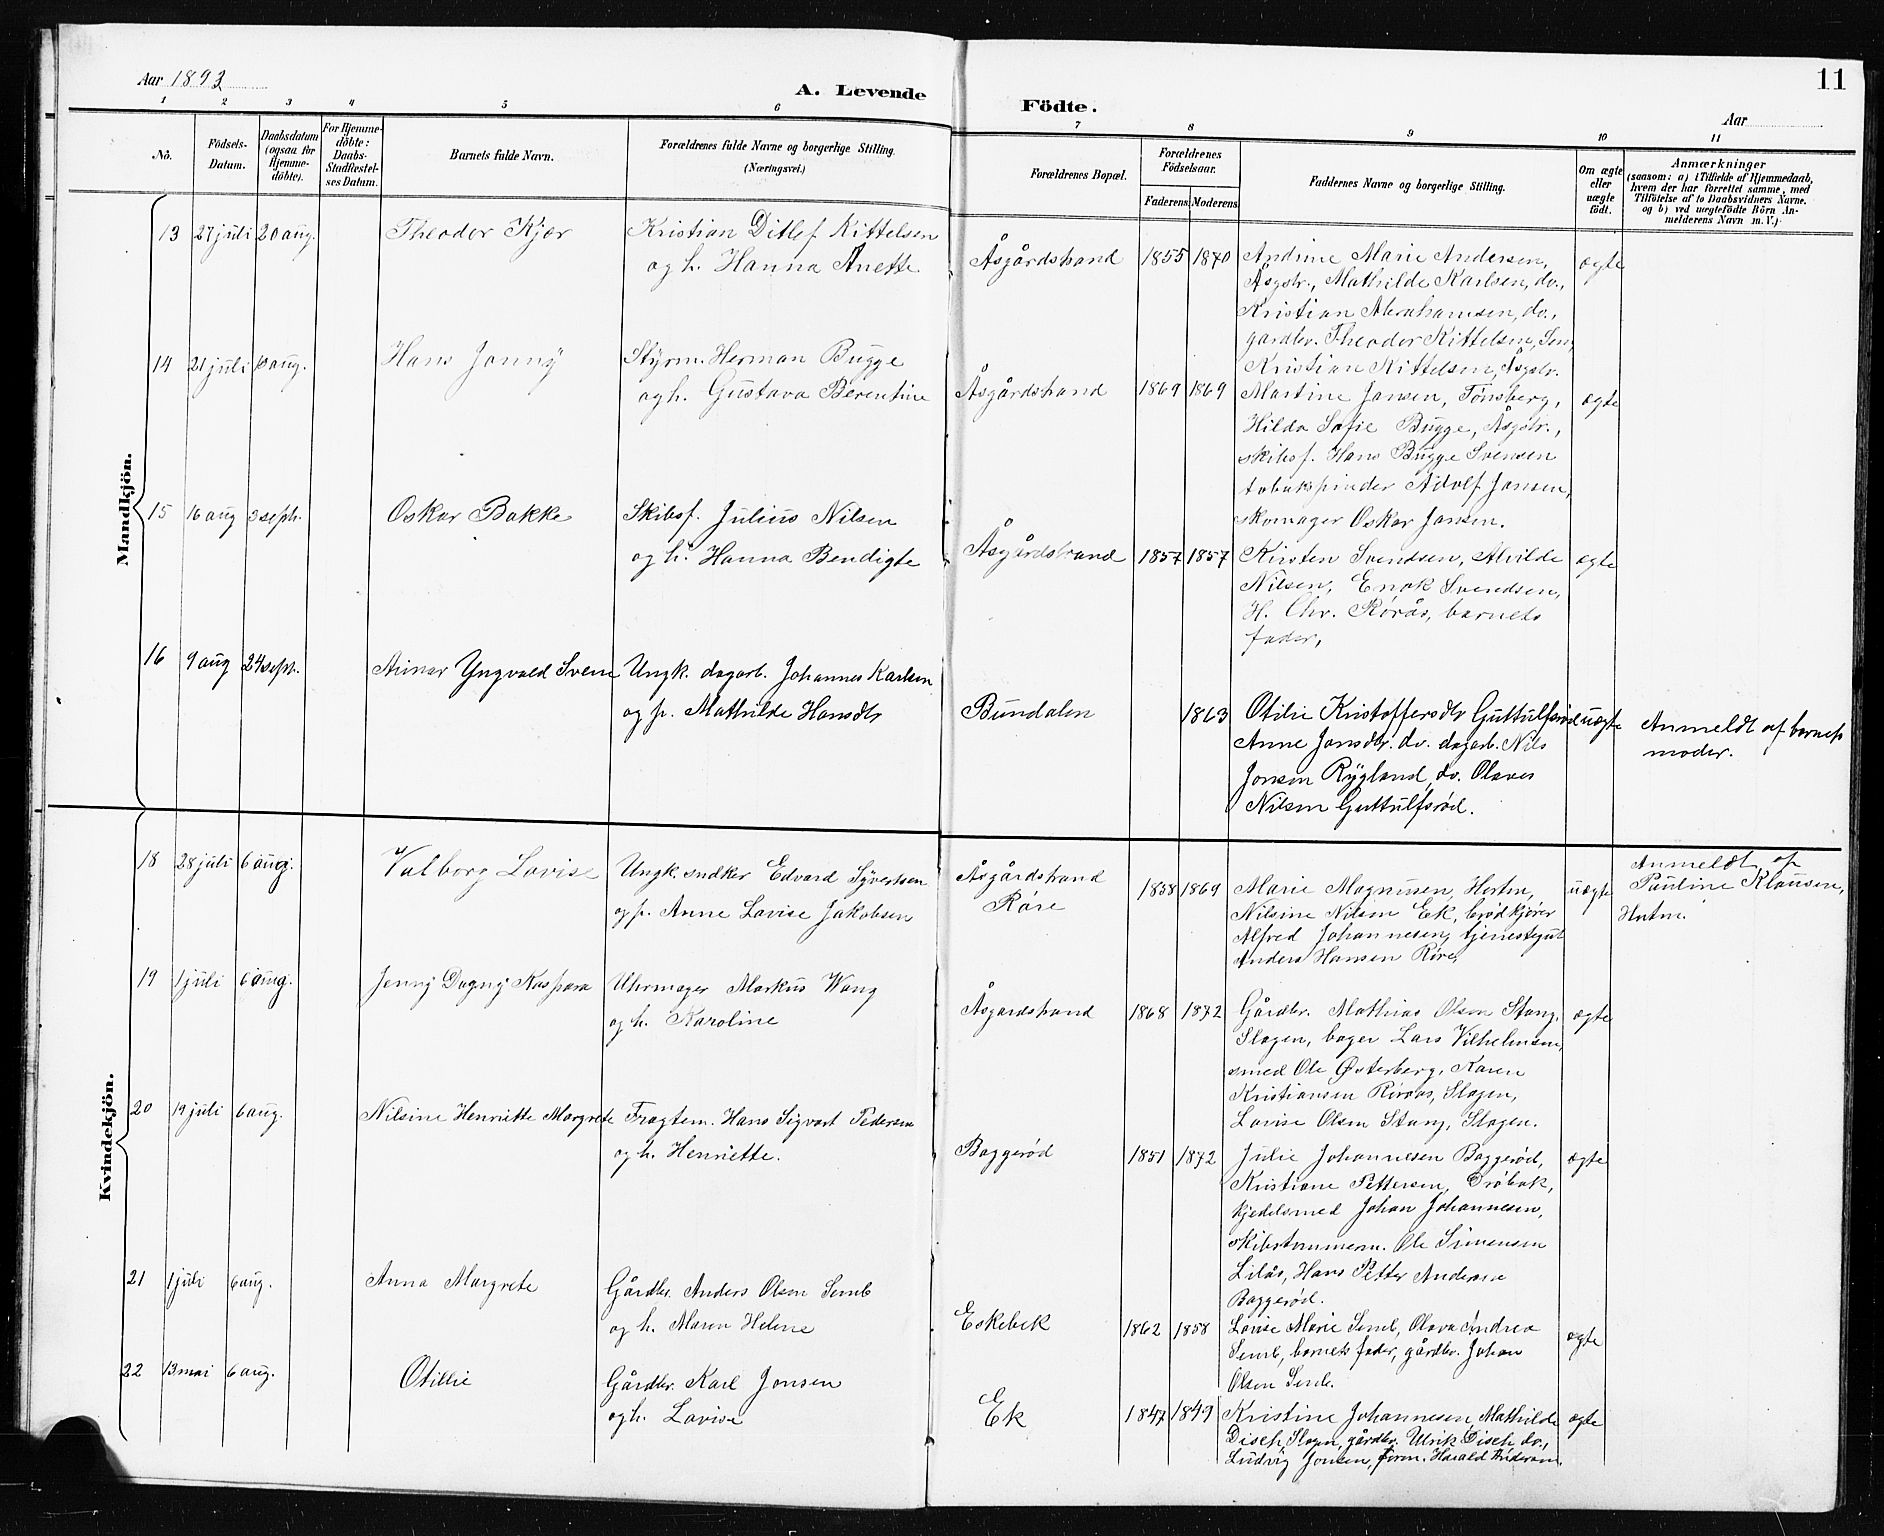 Aar 1893
A. Levende
Födte.
Aar
11
1 2 3 4 5 6 7 8 9 10 11
No.
Födsels-Datum.
Daabsdatum (ogsaa for Hjemme-döbte).
For Hjemme-döbte: Daabs-Stadfæstel-ses Datum.
Barnets fulde Navn.
Forældrenes fulde Navne og borgerlige Stilling.
(Næringsvei.)
Forældrenes Bopæl.
Forældrenes Födselsaar.
Faderens Moderens
Faddernes Navne og borgerlige Stilling.
Om ægte eller uægte födt.
Anmærkninger
(saasom: a) i Tilfælde af Hjemmedaab,
hvem der har forrettet samme, med
Tilföielse af to Daabsvidners Navne.
og b) ved uægtefödte Börn An-
melderens Navn m. V.).
Mandkjön.
13 27 juli 20 aug. Theodor Kjær Kristian Ditlef Kittelsen
og h. Hanna Anette Åsgårdstrand 1855 1870 Andrine Marie Andersen, ægte
Åsgstr., Mathilde Karlsen, do.,
Kristian Abrahamsen, do.,
gårdbr. Theodor Kittelsen, Sem,
Kristian Kittelsen, Åsgstr.
14 21 juli aug. Hans Jonny Styrm. Herman Bugge
og h. Gustava Berentine Åsgårdstrand 1869 1869 Martine Jansen, Tønsberg, ægte
Hilda Sofie Bugge, Åsgstr.,
skibsf. Hans Bugge Svensen
tobakspinder Adolf Jansen,
skomager Oskar Jansen.
15 16 aug 3 septr. Oskar Bakke Skibsf. Julius Nilsen
og h. Hanna Bendigte Åsgårdstrand 1857 1857 Kirsten Svendsen, Alvilde ægte
Nilsen, Enok Svendsen,
H. Chr. Rørås, barnets
fader,
16 9 aug 24 septr. Yngvald Svein Ungk. dagarb. Johannes Karlsen
og p. Mathilde Hansdtr Bundalen 1863 Otilie Kristoffersdtr Guttulfsrød uægte Anmeldt af barnets
moder.
Anne Jansdtr. do. dagarb. Nils
Jonsen Rygland, do. Olaves
Nilsen Guttulfsrød.
Kvindekjön.
18 28 juli 6 aug. Valborg Lovise Ungk. sndker Edvard Syvertsen
og p. Anne Lovise Jakobsen Åsgårdstrand
Røre 1858 1869 Marie Magnusen, Horten, uægte Anmeldt af
Pauline Klausen,
Hortn.
Nilsine Nilsen Ek, brødkjører
Alfred Johannesen, tjenestegut
Anders Hansen Røre,
19 1 juli 6 aug. Jenny Dagny Kaspara Uhrmager Markus Wang
og h. Karoline Åsgårdstrand 1868 1872 Gårdbr. Mathias Olsen Stang, ægte
Slagen, bager Lars Vilhelmsen,
smed Ole Østerberg, Karen
Kristiansen Rørås, Slagen,
Lovise Olsen Stang, Slagen.
20 19 juli 6 aug. Nilsine Henriette Margrete Fragtem. Hans Sigvart Pedersen
og h. Henriette. Baggerød 1851 1872 Julie Johannesen Baggerød, ægte
Kristiane Pettersen, Drøbak,
kjedelsmed Johan Johannesen,
skibstømmerm. Ole Simensen
Lilås, Hans Petter Andersen
Baggerød.
21 1 juli 6 aug. Anna Margrete Gårdbr. Anders Olsen Semb
og h. Maren Helene Eskebek 1862 1858 Lovise Marie Semb, Olava Andrea ægte
Semb, barnets fader, gårdbr. Johan
Olsen Semb.
22 13 mai 6 aug. Otillie Gårdbr. Karl Jonsen
og h. Lovise Ek 1847 1849 Kristine Johannesen, Mathilde ægte
Disch, Slagen, gårdbr. Ulrik Disch do.,
Ludvig Jonsen, Harald Andersen.